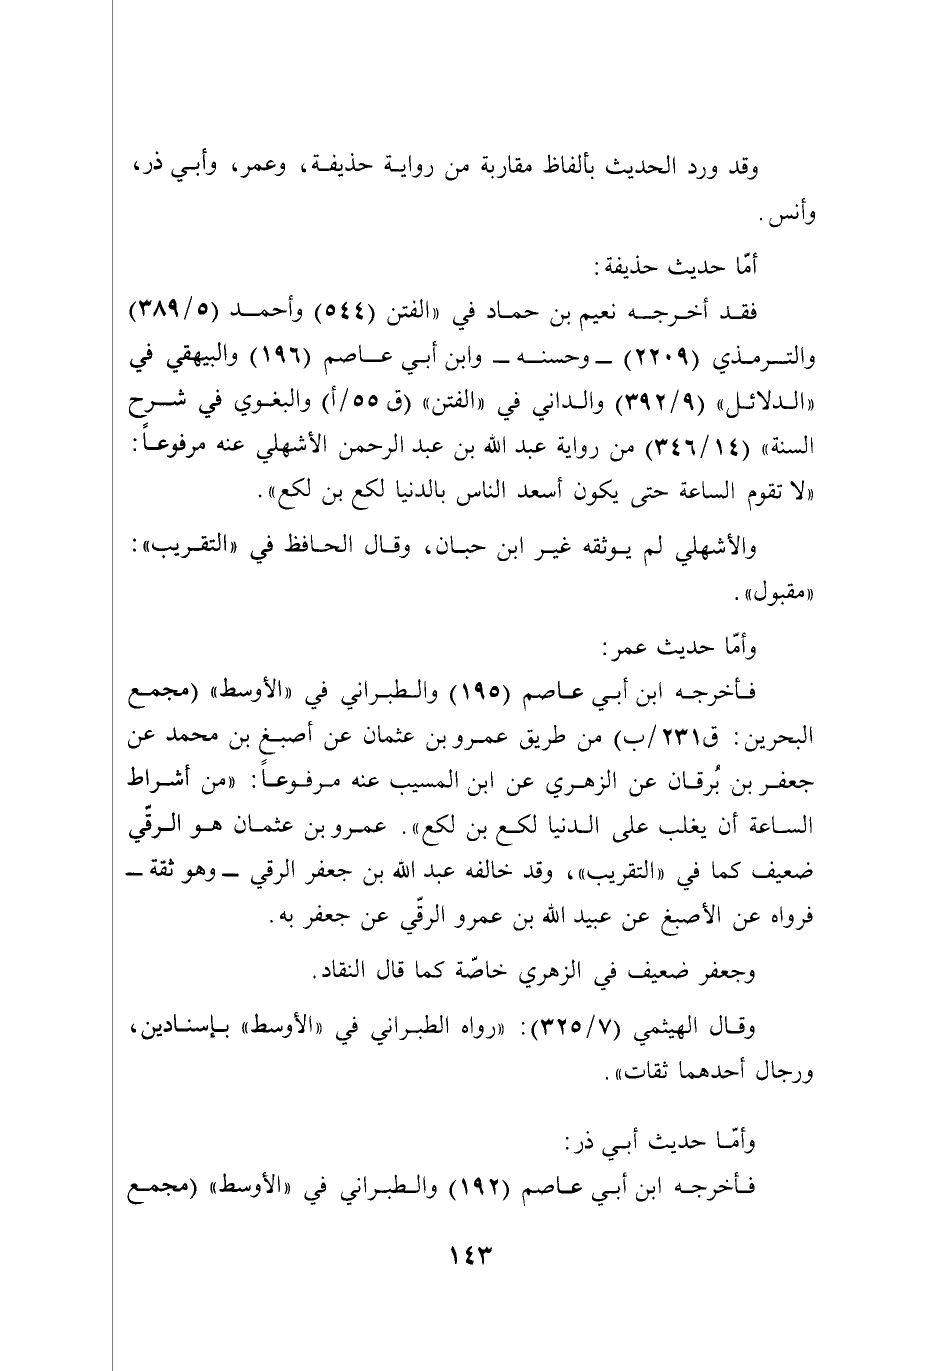 وقد ورد الحديث بألفاظ مقاربة من رواية حذيفة، وعمر، وأبي ذر،
وأنس.
أمّا حديث حذيفة:
فقد أخرجه نعيم بن حماد في «الفتن (٥٤٤) وأحمد (٣٨٩/٥)
والترمذي (٢٢٠٩) ـ وحسنه ـ وابن أبي عاصم (١٩٦) والبيهقي في
«الدلائل» (٣٩٢/٩) والداني في «الفتن» (ق ٥٥/أ) والبغوي في شرح
السنة» (٣٤٦/١٤) من رواية عبد الله بن عبد الرحمن الأشهلي عنه مرفوعاً:
«لا تقوم الساعة حتى يكون أسعد الناس بالدنيا لكع بن لكع».
والأشهلي لم يوثقه غير ابن حبان، وقال الحافظ في «التقريب»:
«مقبول».
وأمّا حديث عمر:
فأخرجه ابن أبي عاصم (١٩٥) والطبراني في «الأوسط» (مجمع
البحرين: ق٢٣١/ب) من طريق عمرو بن عثمان عن أصبغ بن محمد عن
جعفر بن بُرقان عن الزهري عن ابن المسيب عنه مرفوعاً: «من أشراط
الساعة أن يغلب على الدنيا لكع بن لكع». عمرو بن عثمان هو الرقّي
ضعيف كما في «التقريب»، وقد خالفه عبد الله بن جعفر الرقي ـ وهو ثقة ـ
فرواه عن الأصبغ عن عبيد الله بن عمرو الرقّي عن جعفر به.
وجعفر ضعيف في الزهري خاصّة كما قال النقاد.
وقال الهيثمي (٣٢٥/٧): «رواه الطبراني في «الأوسط» بإسنادين،
ورجال أحدهما ثقات».
وأمّا حديث أبي ذر:
فأخرجه ابن أبي عاصم (١٩٢) والطبراني في «الأوسط» (مجمع
١٤٣